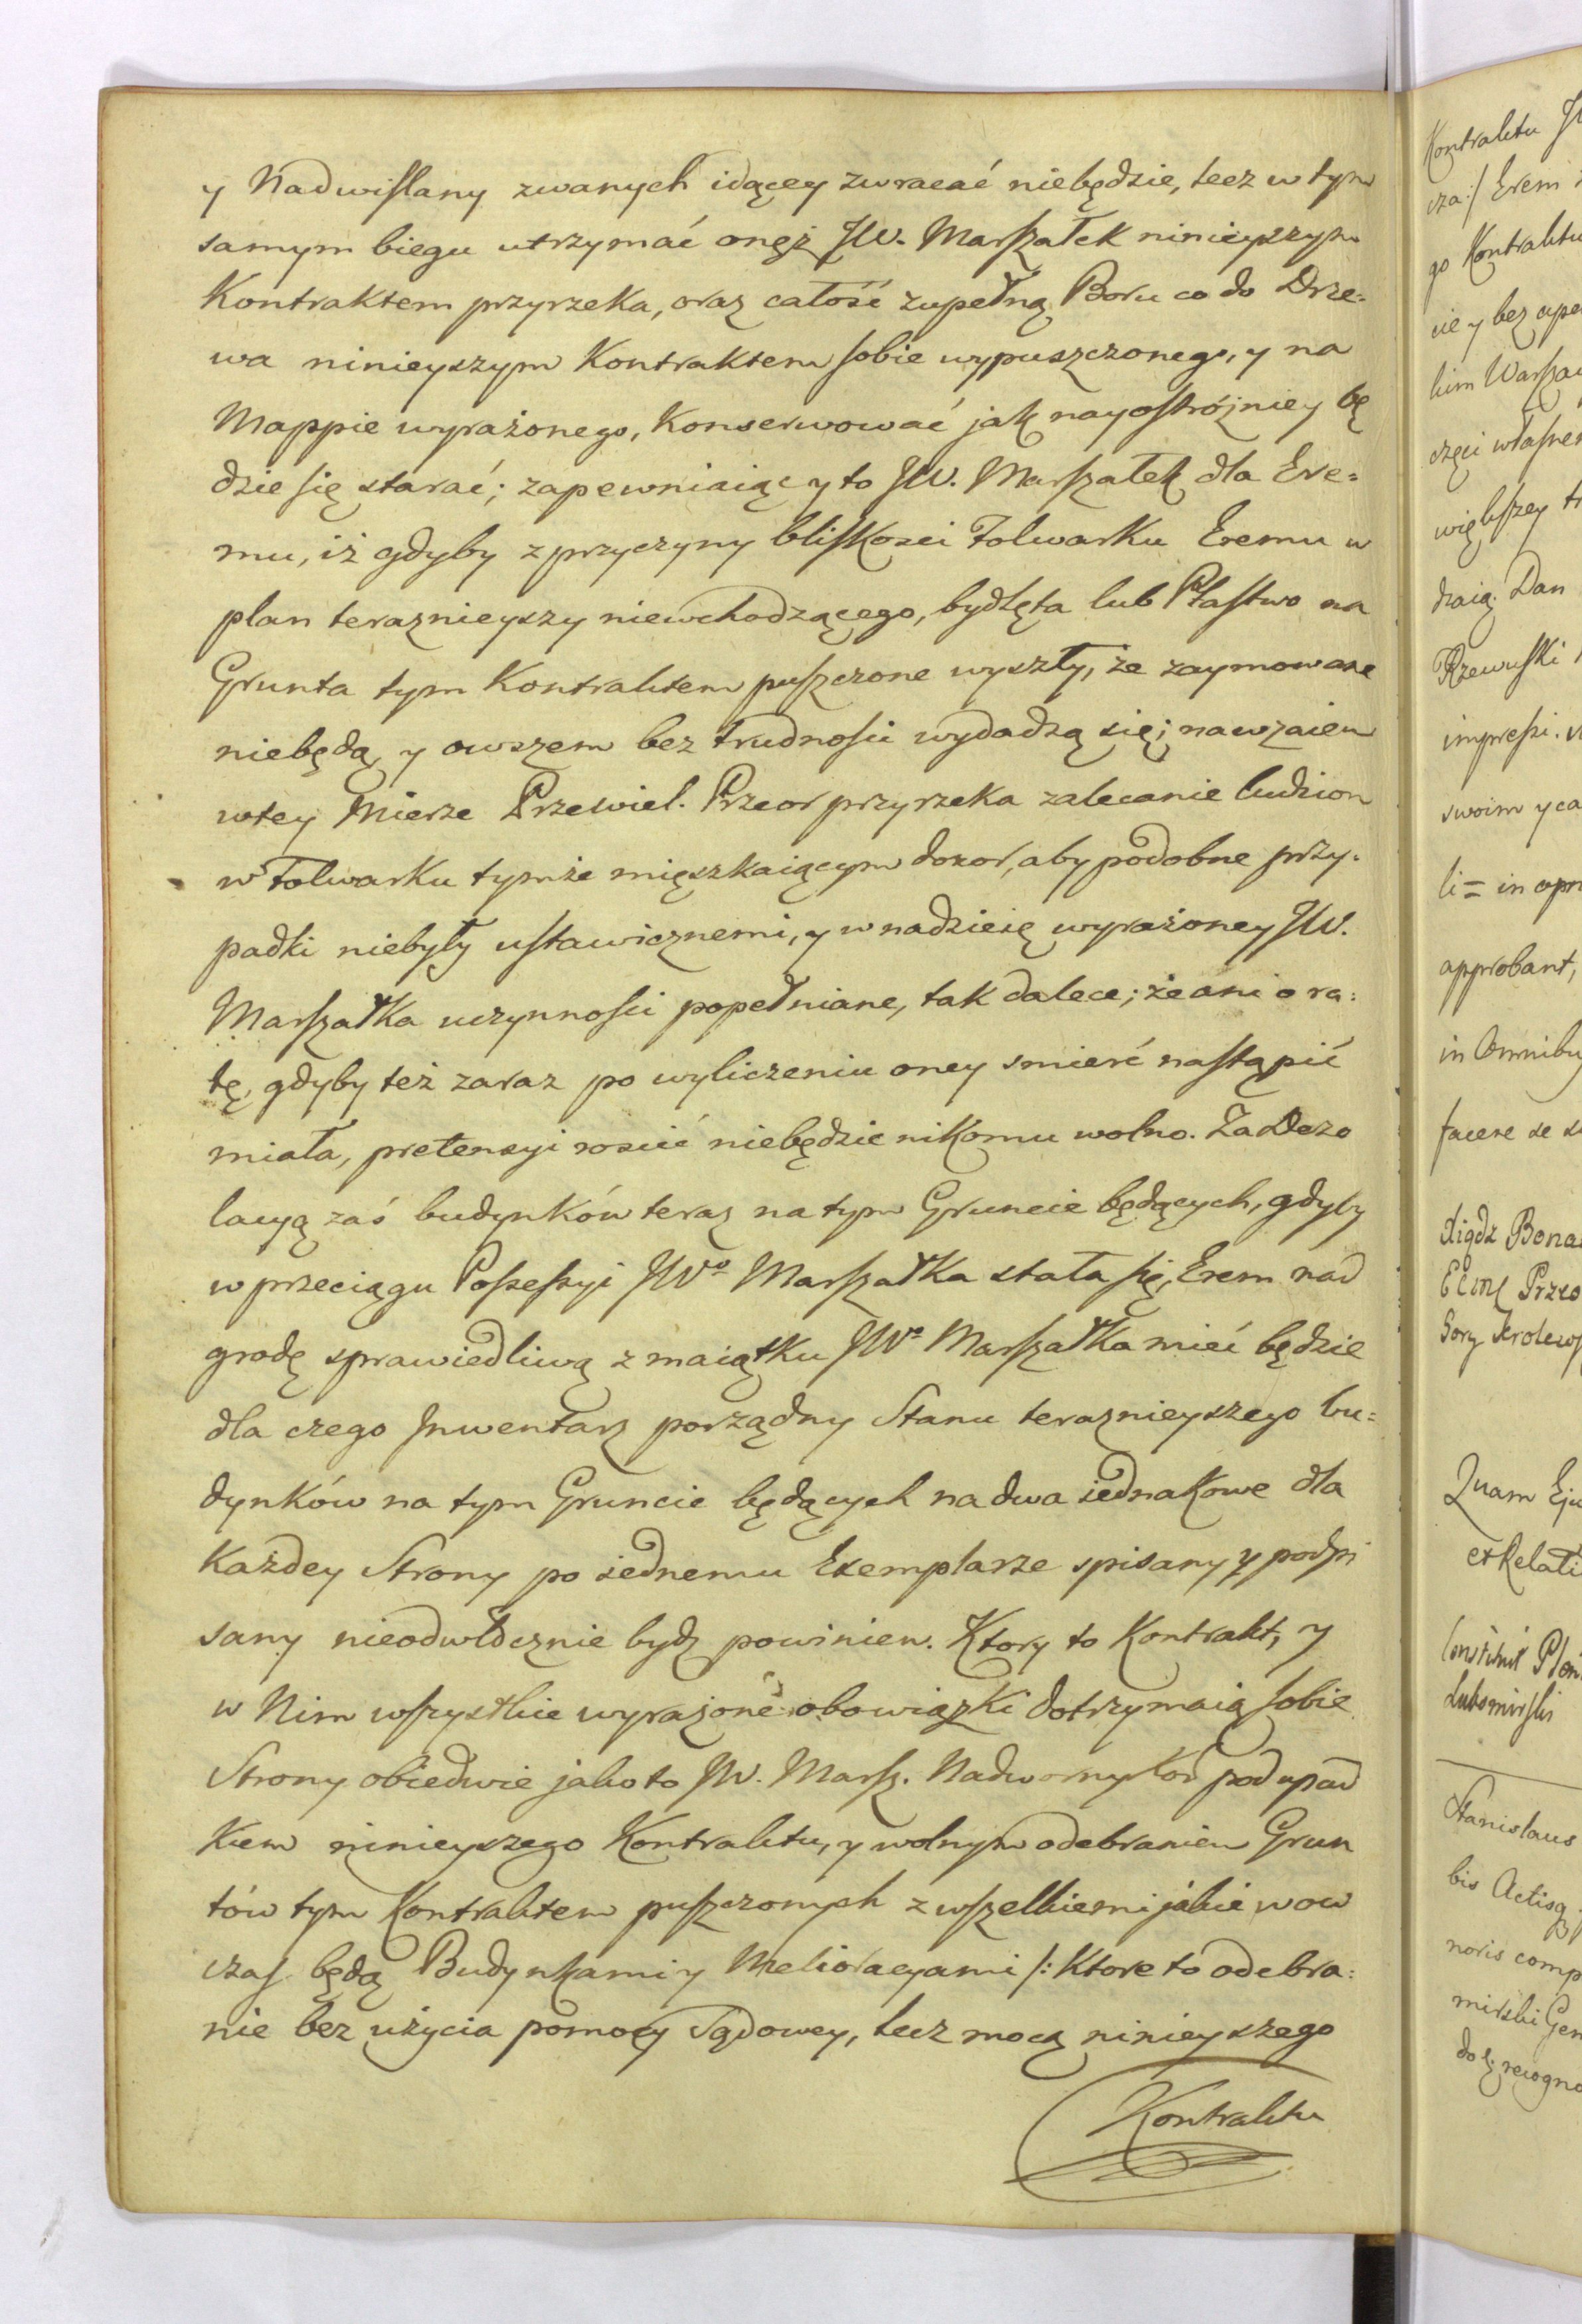 y Nadwiślany zwanych idącey zwracać niebędzie, lecz w tym
samym biegu utrzymać onęż JW. Marszałek ninieyszym
Kontraktem przyrzeka, oraz całość zupełną Boru co do Drze=
wa ninieyszym Kontraktem sobie wypuszczonego, y na
Mappie wyrażonego, Konserwować jak nayostróżniey bę
dzie się starać; zapewniaiąc y to JW. Marszałek dla Ere=
mu, iż gdyby z przyczyny bliskosci Folwarku Eremu w
plan teraznieyszy niewchodzącego, bydlęta lub Ptastwo na
Grunta tym Kontraktem puszczone wyszły, że zaymowane
niebędą, y owszem bez trudności wydadzą się; nawzaiem
w tey Mierze Przewiel. Przeor przyrzeka zalecanie ludziom
w Folwarku tymże mięszkaiącym dozor, aby podobne przy=
padki niebyły ustawicznemi, y w nadzieię wyrażoney JW.
Marszałka uczynności popełniane, tak dalece; że ani o ra=
tę, gdyby też zaraz po wyliczeniu oney smierć nastąpić
miała, pretensyi rościć niebędzie nikomu wolno. Za Dezo
lacyą zaś budynków teraz na tym Gruncie będących, gdyby
w przeciągu Possessyi JWo Marszałka stała się, Erem nad
grodę sprawiedliwą z maiątku JWo Marszałka mieć będzie
dla czego Jnwentarz porządny Stanu teraznieyszego bu=
dynków na tym Gruncie będących na dwa iednakowe dla
Każdey Strony po iednemu Exemplarze spisany y podpi
sany nieodwłócznie bydz powinien. Ktory to Kontrakt, y
w Nim wszystkie wyrażone obowiązki dotrzymaią sobie
Strony obiedwie jako to JW. Marsz. Nadworny Kor pod upad
kiem ninieyszego Kontraktu, y wolnym odebraniem Grun
tów tym Kontraktem puszczonych z wszelkiemi jakie wow
czas będą Budynkami y Melioracyami /: Ktore to odebra=
nie bez użycia pomocy Sądowey, lecz mocą ninieyszego
Kontraktu
Kontraktu
cza :/ Erem
go Kontraktu
cie y bez
kim
części
większey
dzaią. Dan
Rzewuski
impressi.
swoim y
li = in
approbant,
in
facere se
Xiądz
Przeo
Gory
Quam
ex Relati
Lubomirski
Stanislaus
bis Actisq
noris comp
mirski Gen